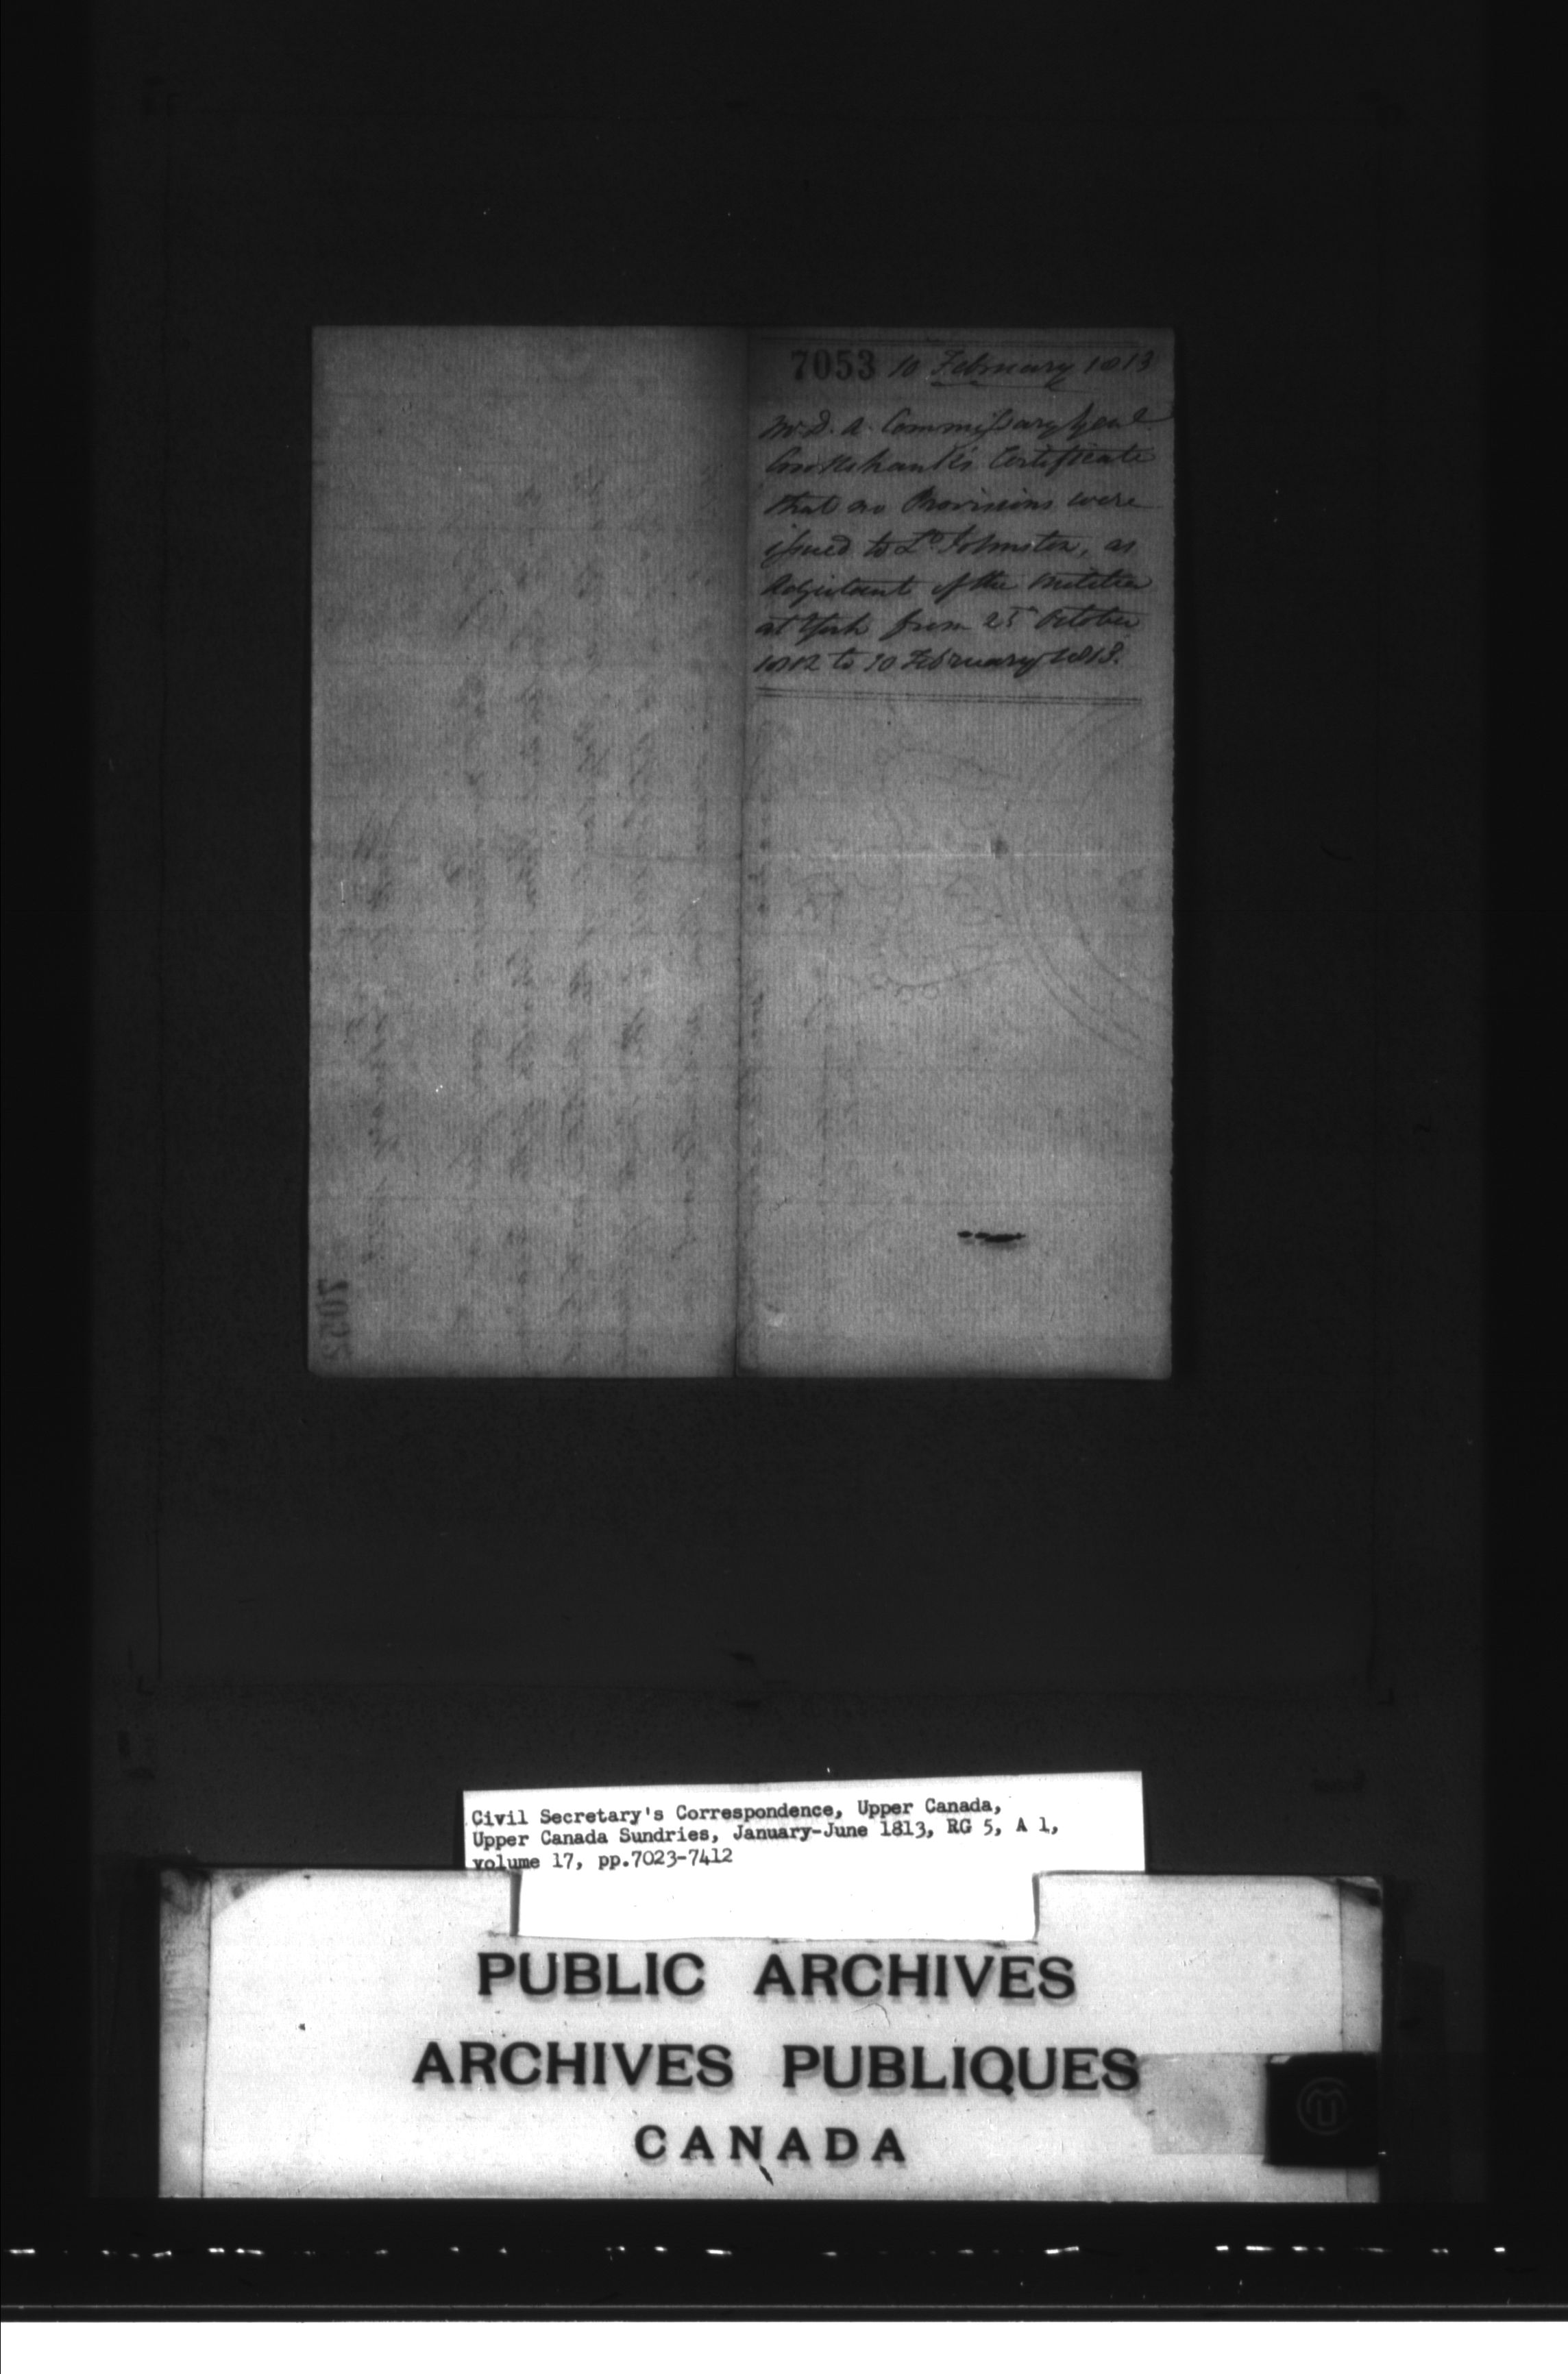 7053 10 February 1813
Mr. D. A. Commissary Genl
Crookshank's Certificate
that no Provisions were
issued to Lt Johnston, as
Adjutant of the Militia
at York from 25th October
1812 to 10 February 1813.
7052
Civil Secretary's Correspondence, Upper Canada,
Upper Canada Sundries, January-June 1813, RG 5, A 1,
volume 17, pp.7023-7412
PUBLIC ARCHIVES
ARCHIVES PUBLIQUES
CANADA